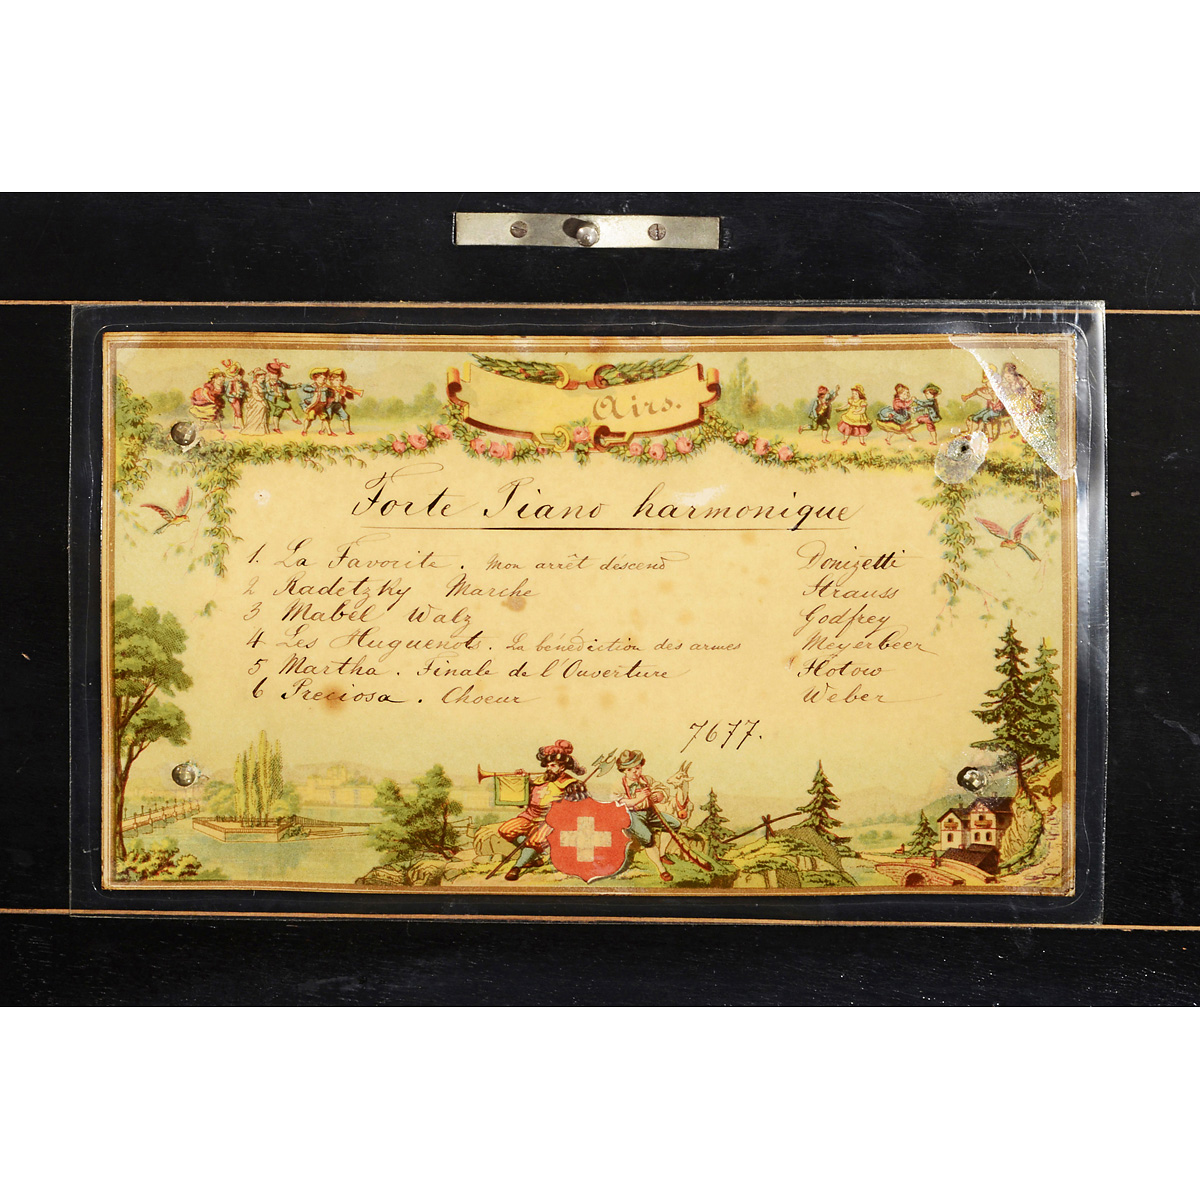 Airs.
Forte Piano harmonique
1. La Favorite. Mon arrêt descend Donizetti
2 Radetzky Marche Strauss
3 Mabel Walz Godfrey
4 Les Huguenots. La bénédiction des armes Meyerbeer
5 Martha. Finale de l'Ouverture Flotow
6 Preciosa. Choeur Weber
7677.